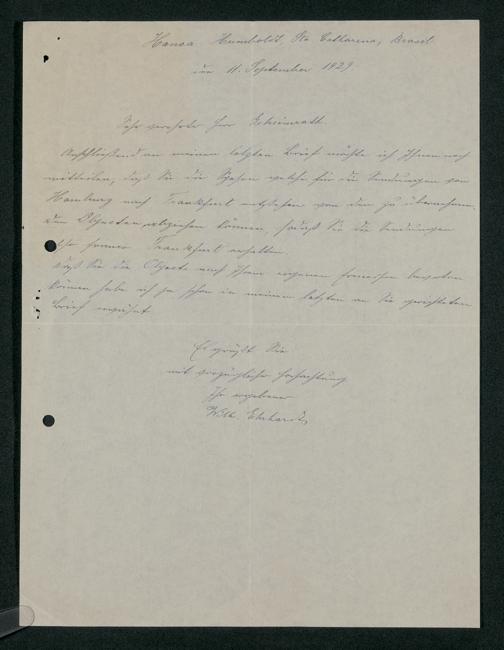 Hansa Humboldt, Sta Catharina, Brasil
den 11. September 1929
Sehr geehrter Herr Geheimrath.
Anschließend an meinen letzten Brief möchte ich Ihnen noch
mitteilen, daß Sie die Spesen welche für die Sendungen von
Hamburg nach Frankfurt entstehen von den zu übernehmen-
den Objecten abziehen können, sodaß Sie die Sendungen
franco Frankfurt erhalten.
daß Sie die Objecte nach Ihrem eigenen Ermessen bewerten
können habe ich ja schon in meinem letzten an Sie gerichteten
Brief erwähnt
Es grüßt Sie
mit vorzüglicher Hochachtung
Ihr ergebener
Wilh. Ehrhardt